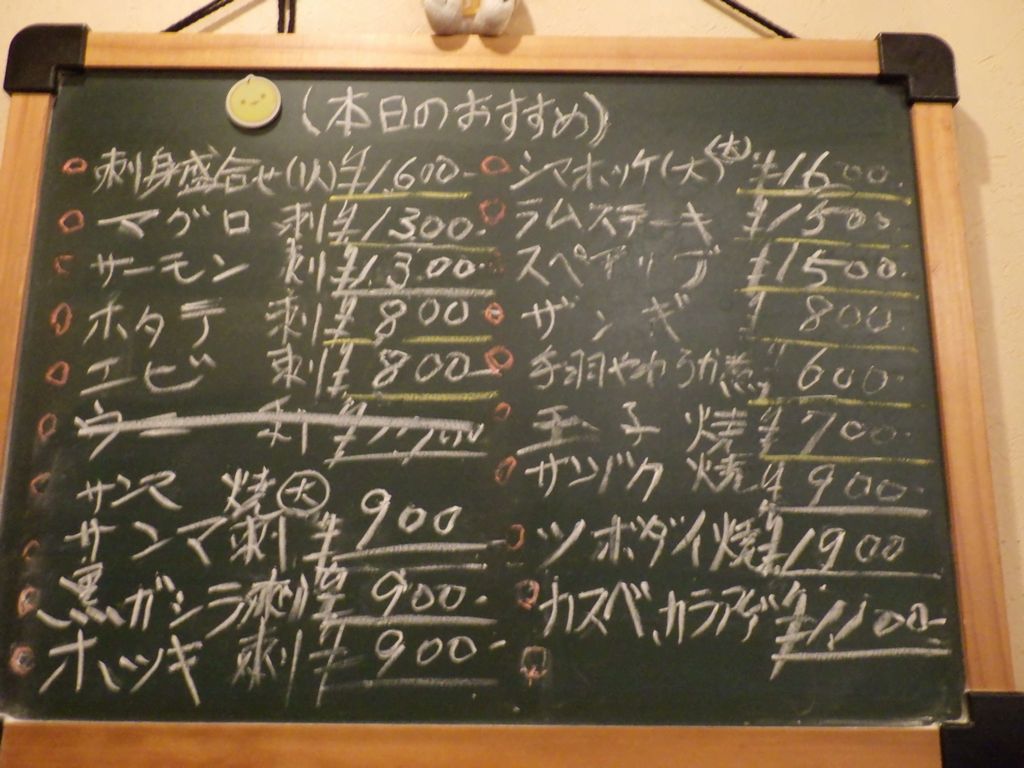 (本日のおすすめ)
刺身盛合せ(1人)¥1,600-
マグロ 刺 ¥1300-
サーモン 刺 ¥1,300-
ホタテ 刺 ¥800
エビ 刺 ¥800-
サンマ 焼 大 900
サンマ刺 ¥
黒ガシラ刺 ¥900-
ホッキ 刺 ¥900-
シマホッケ(大) (大) ¥1600-
ラムステーキ ¥1500-
スペアリブ ¥1500-
ザンギ ¥800
手羽やわらか煮 600
玉子焼 ¥700-
サンゾク焼 ¥900-
ツボダイ焼 ¥1900
カスベ、カラアゲ ¥1,100-